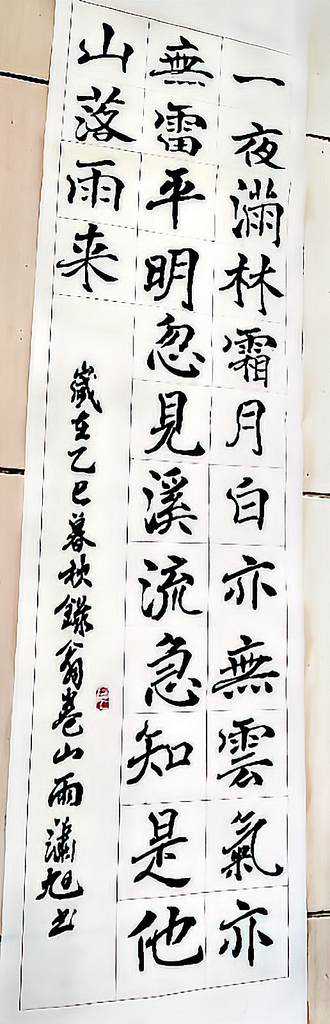 一夜滿林霜月白亦無雲氣亦
無雷平明忽見溪流急知是他
山落雨来
歲在乙巳暮秋錄翁卷山雨瀟旭书